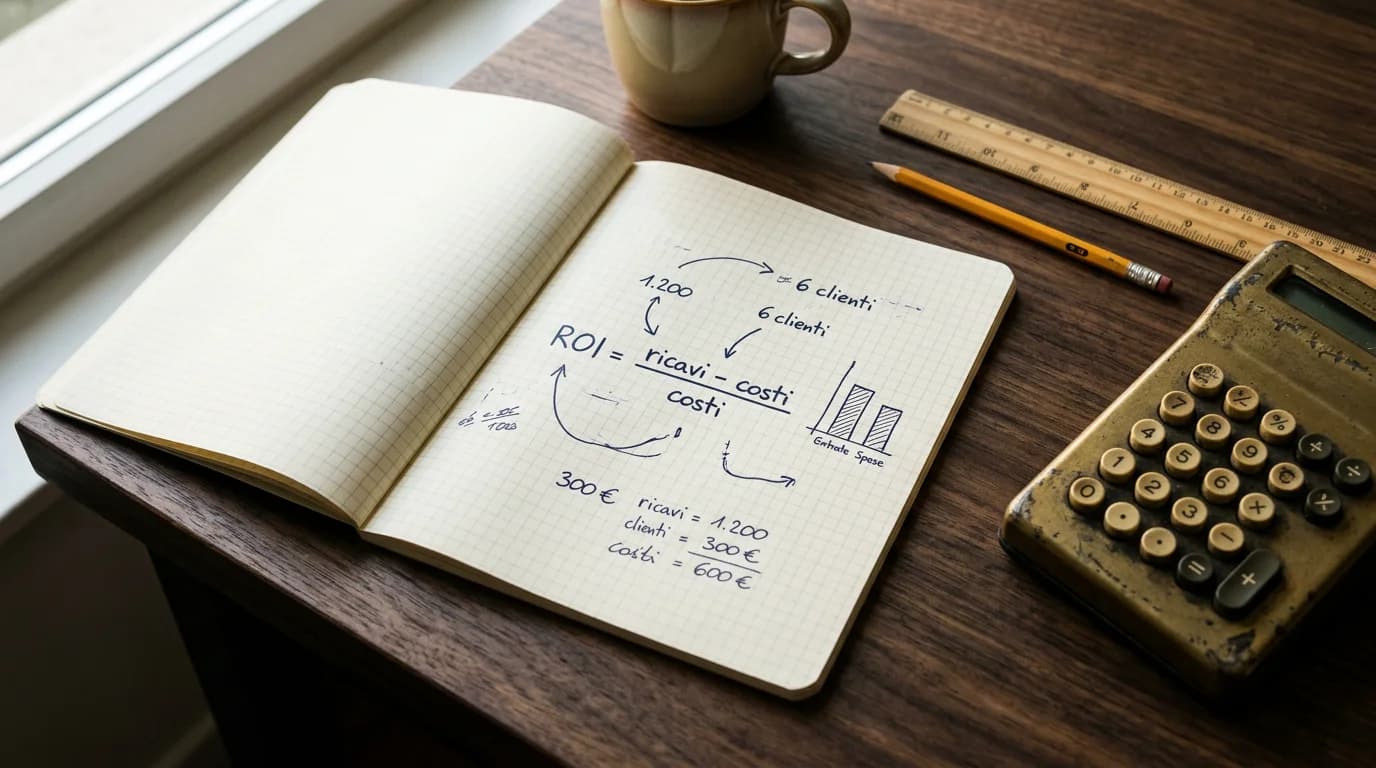 1.200
= 6 clienti
6 clienti
ROI = ricavi - costi
costi
Entrate Spese
300 €
ricavi = 1.200
clienti = 300 €
costi = 600 €
7 8 9
4 5 6
1 2 3
0